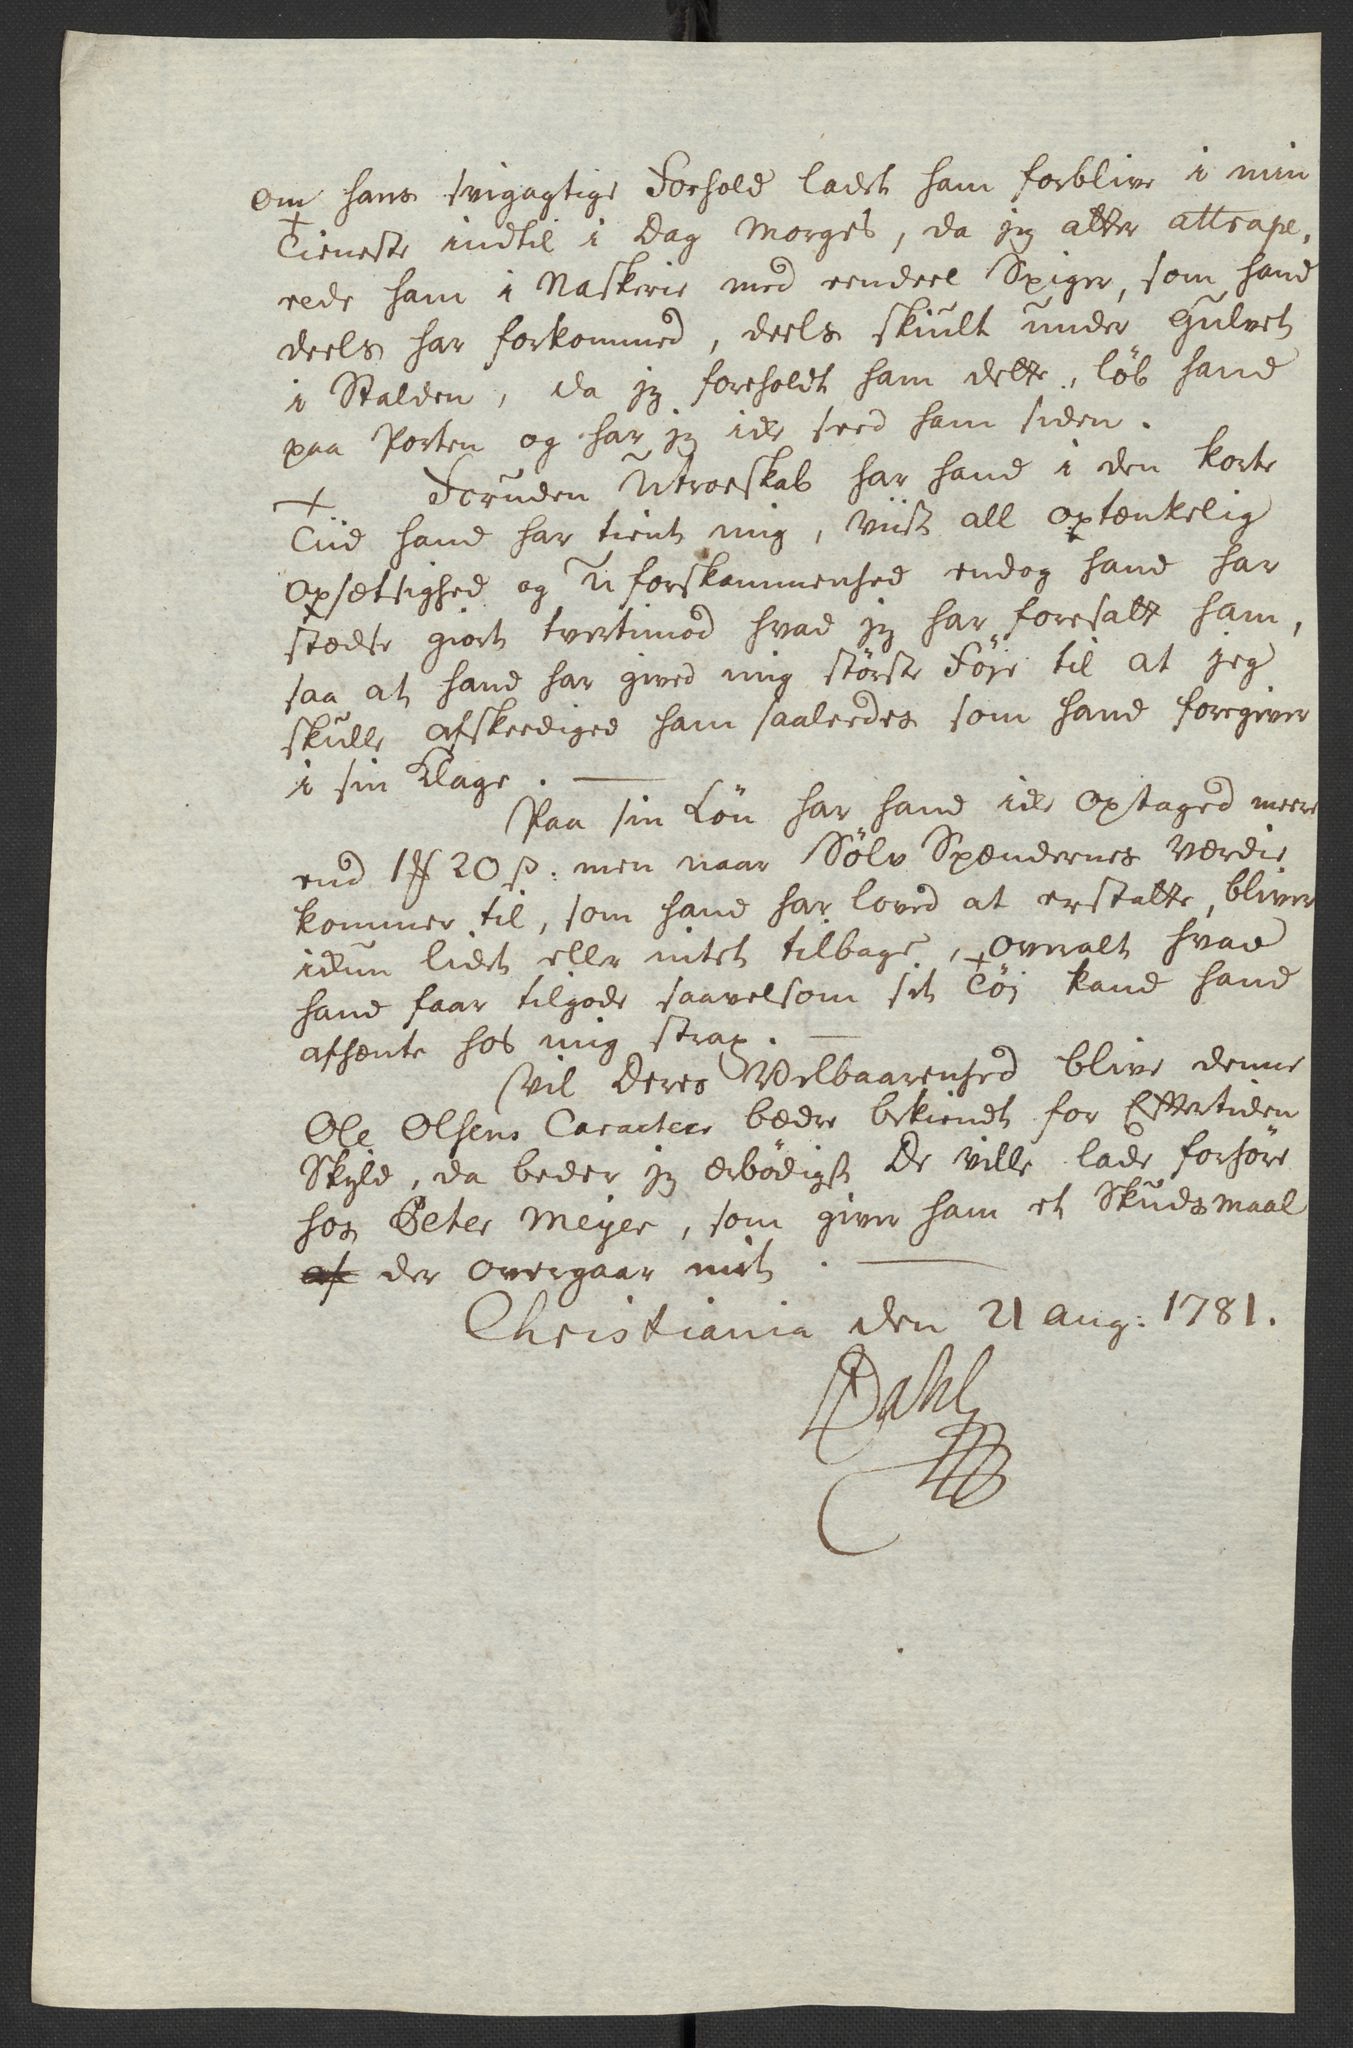 om hans svigagtige Forhold ladet ham forblive i min
Tieneste indtil i Dag Morges, da jeg atter attrape,
rede ham i Naskerie med eendeel Spiger, som hand
deels har forkommed, deels skiult under Gulvet
i Stalden, da jeg foreholdt ham dette, löb hand
paa Porten og har jeg icke seed ham siden.
Foruden Utroeskab har hand i den korte
Tiid hand har tient mig, viist all optænkelig
opsætsighed og Uforskammenhed endog hand har
stædse giort tvertimod hvad jeg har foresatt ham,
saa at hand har gived mig störste Föje til at jeg
skulle afskeediged ham saaleedes som hand foregiver
i sin Klage. —
Paa sin Lön har hand icke optaged meere
end 1 20 ß: men naar Sölv Spændernes Værdie
kommer til, som hand har loved at erstatte, bliver
ickun lidet eller intet tilbage, overalt hvad
hand faar tilgode saavelsom sit Töj kand hand
afhente hos mig strax. —
Vil Deres Velbaarenhed blive denne
Ole Olsens Caracteer bædre bekiendt for Eftertiden
Skyld, da beder jeg ærbödigst De ville lade forhöre
hos Peter Meyer, som giver ham et Skudsmaal
af der overgaar mit. —
Christiania den 21 Aug: 1781.
Dahl